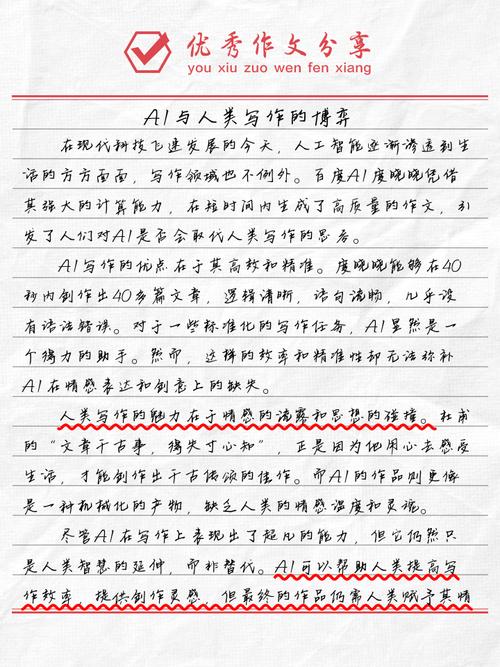 优秀作文分享
you xiu zuo wen fen xiang
AI与人类写作的博弈
在现代科技飞速发展的今天，人工智能逐渐渗透到生
活的方方面面，写作领域也不例外。百度AI度晓晓凭借
其强大的计算能力，在短时间内生成了高质量的作文，引
发了人们对AI是否会取代人类写作的思考。
AI写作的优点在于其高效和精准。度晓晓能够在40
秒内创作出40多篇文章，逻辑清晰，语句流畅，几乎没
有语法错误。对于一些标准化的写作任务，AI显然是一
个得力的助手。然而，这样的效率和精准性却无法弥补
AI在情感表达和创意上的缺失。
人类写作的魅力在于情感的流露和思想的碰撞。杜甫
的“文章千古事，得失寸心知”，正是因为他用心去感受
生活，才能创作出千古传颂的佳作。而AI的作品则更像
是一种机械化的产物，缺乏人类的情感温度和灵魂。
尽管AI在写作上表现出了超凡的能力，但它仍然只
是人类智慧的延伸，而非替代。AI可以帮助人类提高写
作效率，提供创作灵感，但最终的作品仍需人类赋予其情